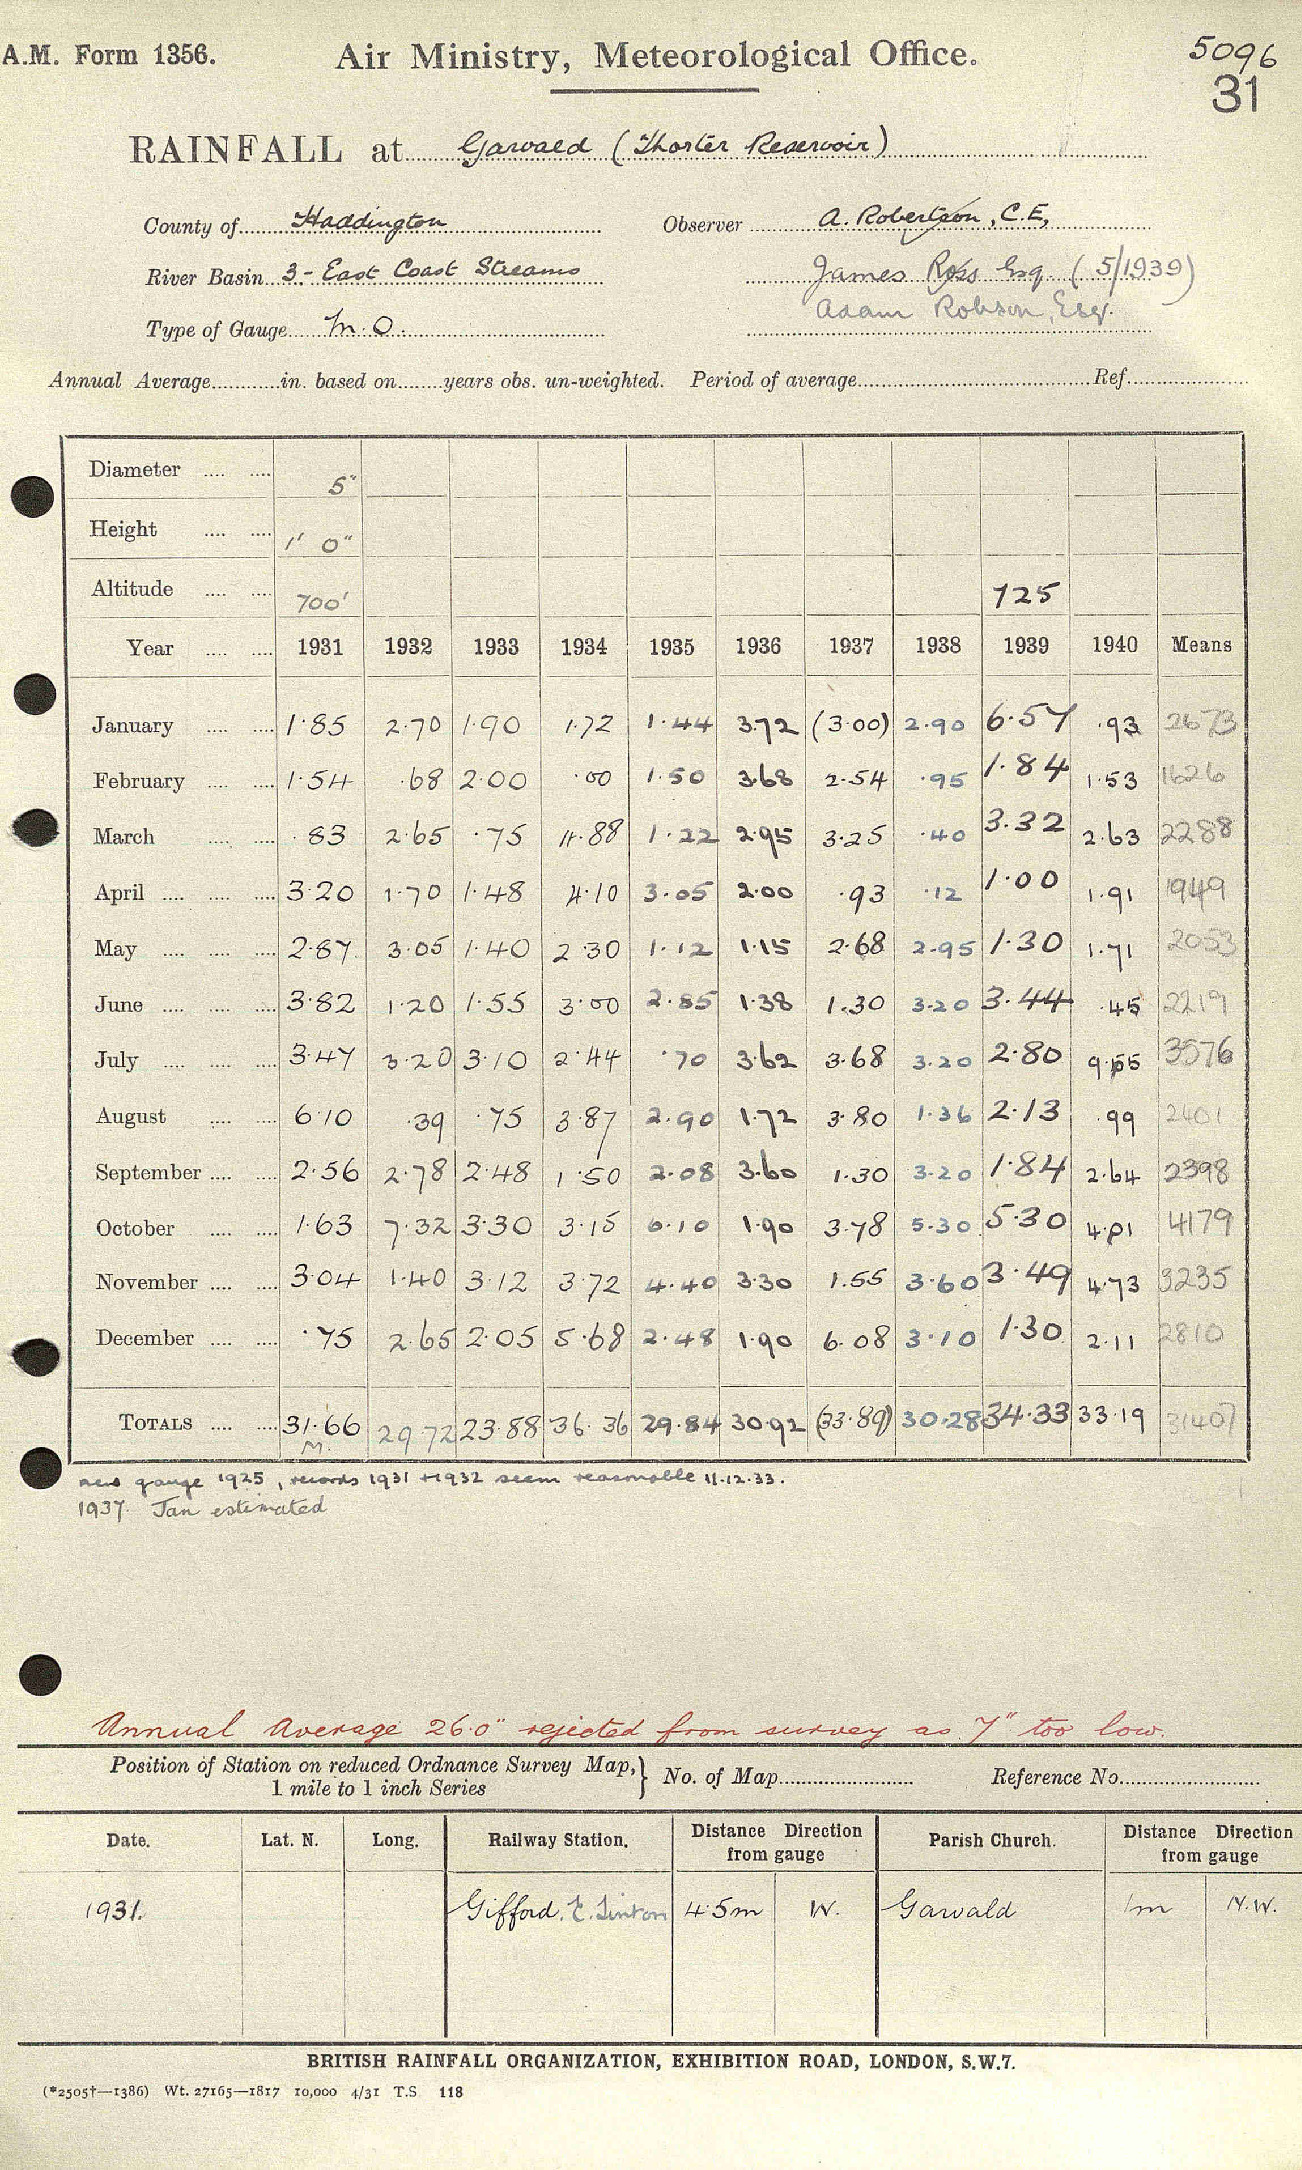 A.M. Form 1356. Air Ministry, Meteorological Office. 5096
31
RAINFALL at Garvald (Thorter Reservoir)
County of Haddington Observer A. Robertson, C.E,
River Basin 3 - East Coast Streams James Ross Esq. (5/1939)
Type of Gauge M.O. Adam Robson, Esq.
Annual Average in. based on years obs. un-weighted. Period of average Ref.
Diameter 5"
Height 1' 0"
Altitude 700' 725
Year 1931 1932 1933 1934 1935 1936 1937 1938 1939 1940 Means
January 1.85 2.70 1.90 1.72 1.44 3.72 (3.00) 2.90 6.57 .93 2673
February 1.54 .68 2.00 .00 1.50 3.68 2.54 .95 1.84 1.53 1626
March .83 2.65 .75 4.88 1.22 2.95 3.25 .40 3.32 2.63 2288
April 3.20 1.70 1.48 4.10 3.05 2.00 .93 .12 1.00 1.91 1949
May 2.87 3.05 1.40 2.30 1.12 1.15 2.68 2.95 1.30 1.71 2053
June 3.82 1.20 1.55 3.00 2.85 1.38 1.30 3.20 3.44 .45 2219
July 3.47 3.20 3.10 2.44 .70 3.62 3.68 3.20 2.80 9.55 3576
August 6.10 .39 .75 3.87 2.90 1.72 3.80 1.36 2.13 .99 2401
September 2.56 2.78 2.48 1.50 2.08 3.60 1.30 3.20 1.84 2.64 2398
October 1.63 7.32 3.30 3.15 6.10 1.90 3.78 5.30 5.30 4.01 4179
November 3.04 1.40 3.12 3.72 4.40 3.30 1.55 3.60 3.49 4.73 3235
December .75 2.65 2.05 5.68 2.48 1.90 6.08 3.10 1.30 2.11 2810
TOTALS 31.66 29.72 23.88 36.36 29.84 30.92 (33.89) 30.28 34.33 33.19 31407
M.
new gauge 1925, records 1931 + 1932 seem reasonable 11.12.33.
1937. Jan estimated
Annual Average 26.0" rejected from survey as 7" too low.
Position of Station on reduced Ordnance Survey Map, } No. of Map Reference No.
1 mile to 1 inch Series
Date. Lat. N. Long. Railway Station. Distance Direction from gauge Parish Church. Distance Direction from gauge
1931. Gifford, E. Linton 4.5m W. Garvald 1m N.W.
BRITISH RAINFALL ORGANIZATION, EXHIBITION ROAD, LONDON, S.W.7.
(*2505†—1386) Wt. 27165—1817 10,000 4/31 T.S 118